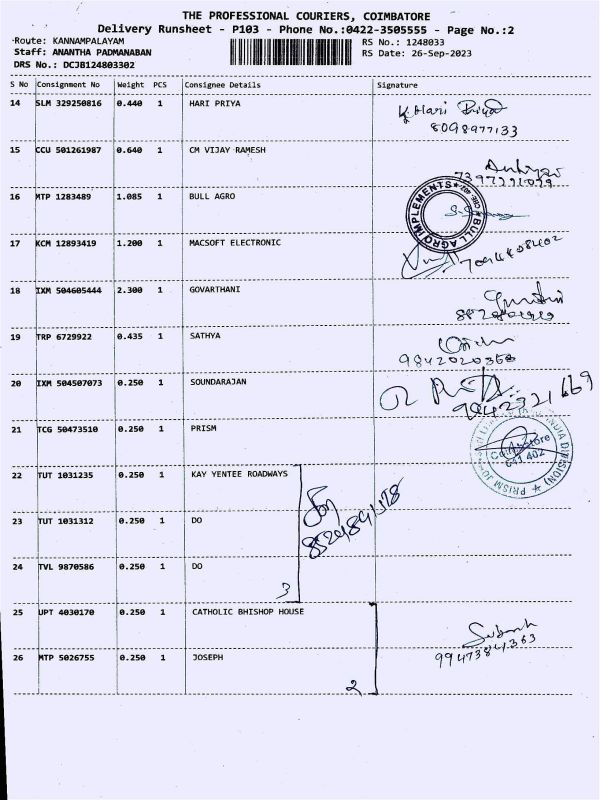 THE PROFESSIONAL COURIERS, COIMBATORE
Delivery Runsheet - P103 - Phone No.:0422-3505555 - Page No.:2
Route: KANNAMPALAYAM RS No.: 1248033
Staff: ANANTHA PADMANABAN RS Date: 26-Sep-2023
DRS No.: DCJB124803302
S No Consignment No Weight PCS Consignee Details Signature
14 SLM 329250816 0.440 1 HARI PRIYA K. Hari Priya
8098977133
15 CCU 501261987 0.640 1 CM VIJAY RAMESH
16 MTP 1283489 1.085 1 BULL AGRO
BULL AGRO IMPLEMENTS
17 KCM 12893419 1.200 1 MACSOFT ELECTRONIC
18 IXM 504605444 2.300 1 GOVARTHANI
19 TRP 6729922 0.435 1 SATHYA
9842020368
20 IXM 504507073 0.250 1 SOUNDARAJAN
21 TCG 50473510 0.250 1 PRISM
Coimbatore
641 402
PRISM
22 TUT 1031235 0.250 1 KAY YENTEE ROADWAYS
23 TUT 1031312 0.250 1 DO
24 TVL 9870586 0.250 1 DO
3
25 UPT 4030170 0.250 1 CATHOLIC BHISHOP HOUSE
26 MTP 5026755 0.250 1 JOSEPH
9947384363
2